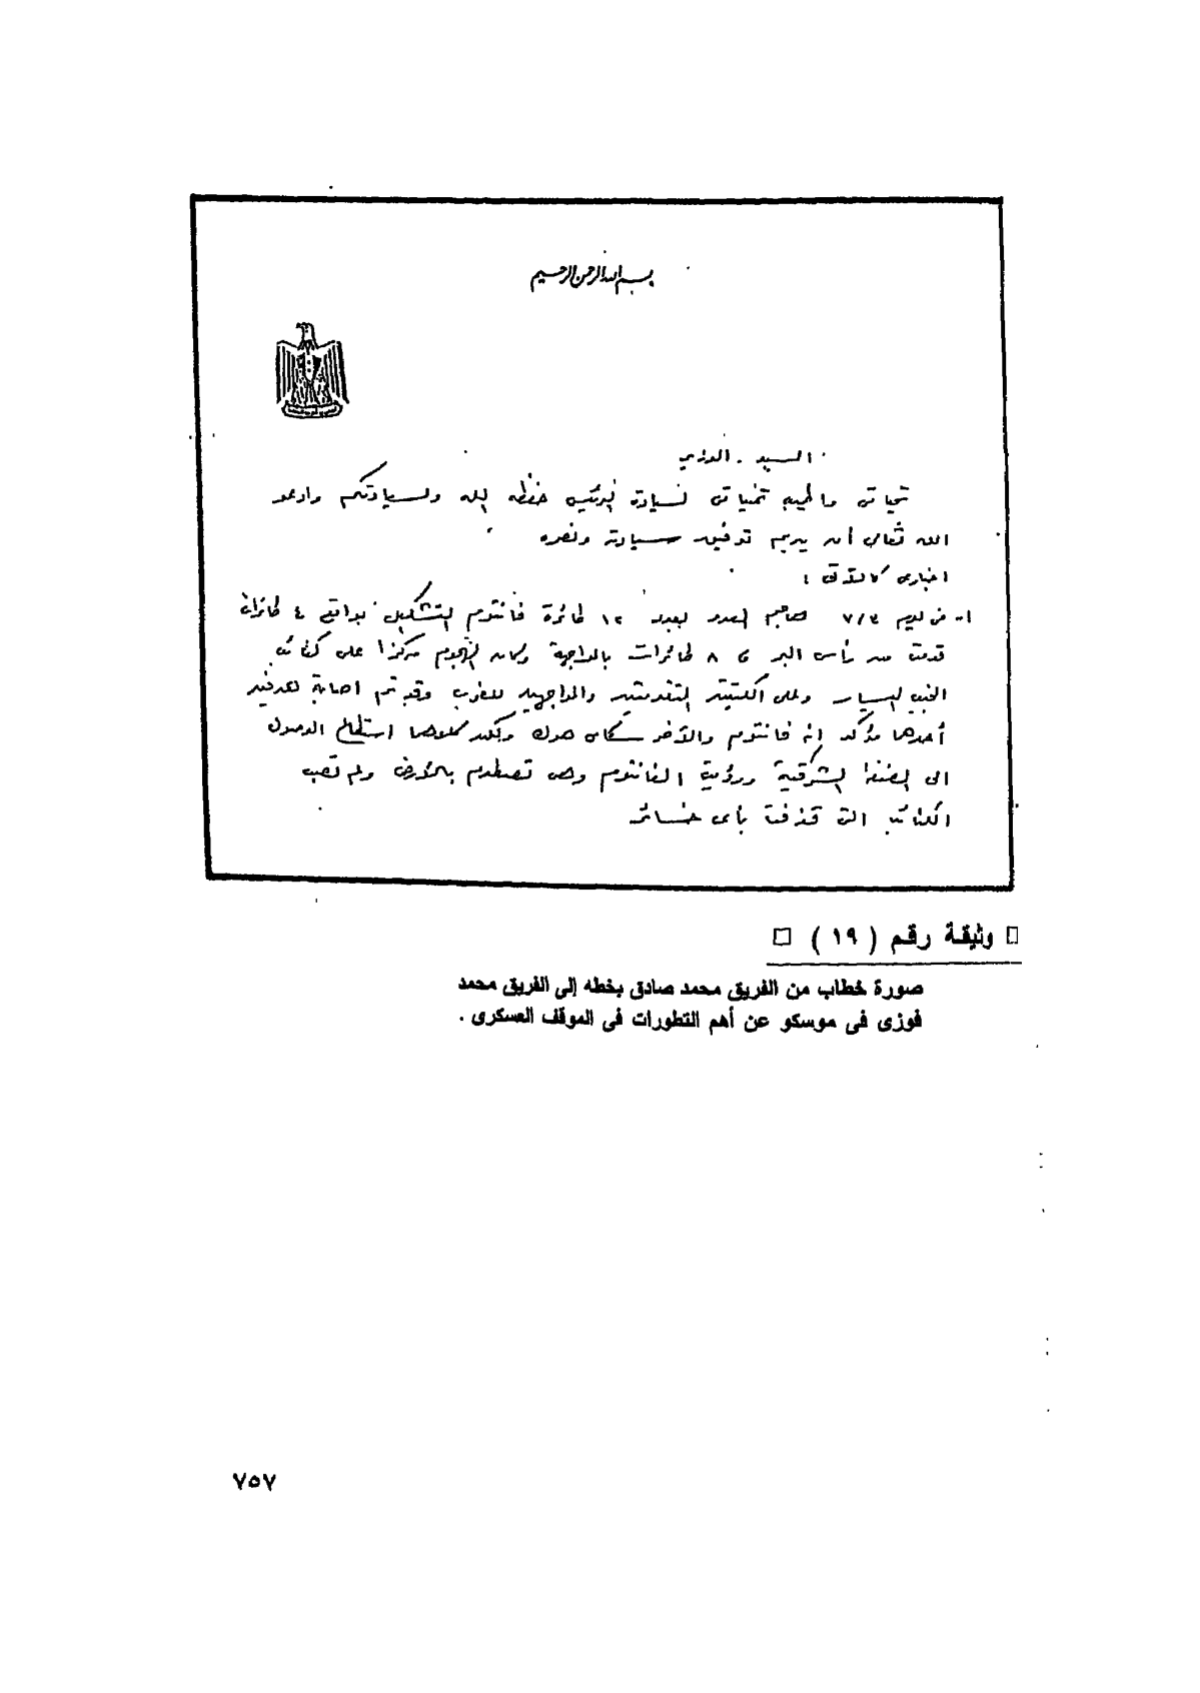 بسم الله الرحمن الرحيم
السيد الوزير
تحياتى وأطيب تمنياتى لسيادة الرئيس حفظه الله ولسيادتكم وادعو
الله تعالى أن يديم توفيق سيادته ونصره
اخبارى كالآتى :
١- فى يوم ٧/٣ هاجم العدو بعدد ١٢ طائرة فانتوم التشكيل بواقع ٤ طائرات
قدمت من رأس البر و ٨ طائرات بالمواجهة وكان الهجوم مركزا على كتائب
الجنب اليسار وعلى الكتيبتين المتقدمتين والمواجهين للغرب وقد تم اصابة هدفين
أحدهما مؤكد انه فانتوم والآخر سكاى هوك ولكن كلاهما استطاع الوصول
الى الضفة الشرقية ورؤيت الفانتوم وهى تصطدم بالأرض ولم تصب
الكتائب التى قذفت بأى خسائر
وثيقة رقم ( ١٩ )
صورة خطاب من الفريق محمد صادق بخطه إلى الفريق محمد
فوزى فى موسكو عن أهم التطورات فى الموقف العسكرى .
٧٥٧